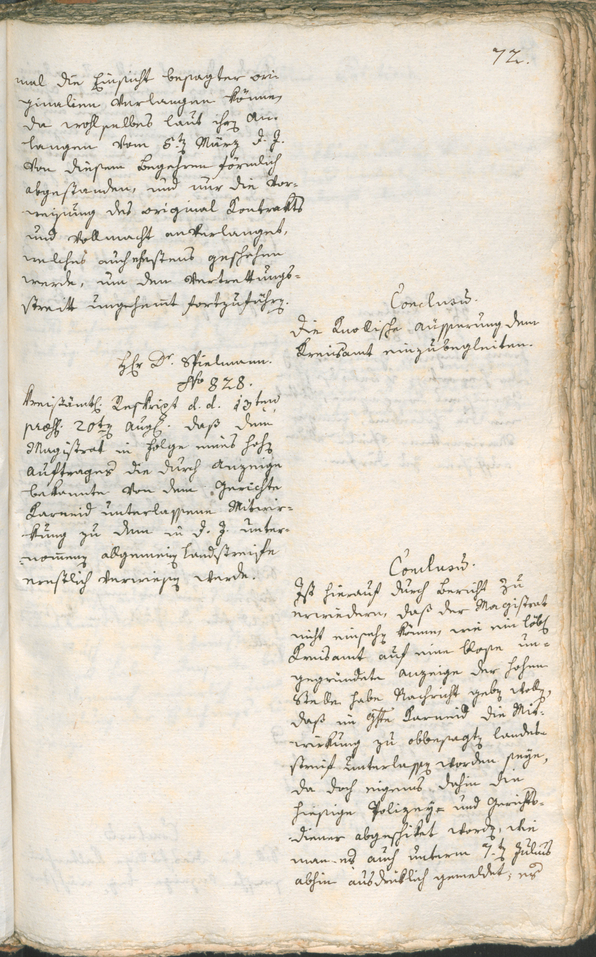 72.
mal die Einsicht besagter ori
ginalien verlangen können
da wohlselbes laut ihrz An-
langen vom 6.tz März d. J.
von diesem begehren förmlich
abgestanden, und nur die Vor-
weisung des original Kontrakts
und Vollmacht anverlanget,
welches auch ehestens geschehen
werde, um den Vertrettungs-
streitt ungehemt fortzuführz.
Conclusū.
Die Knollische äusserung dem
Kreisamt einzubegleiten.
Hhr Dr. Spielmann.
No 828.
Kreisämtl. Reskript d. d. 13ten
præs. 20tz Augst. daß dem
Magistrat in Folge eines hohz
Auftrages die durch Anzeige
bekannte von dem Gerichte
Karneid unterlassene Mitwir-
kung zu dem in d. J. unter-
nom̄enen allgemeinz Landstreife
ernstlich verwiesz werde.
Conclusū.
Ist hierauf durch Bericht zu
erwiedern, daß der Magistrat
nicht einsehz könne, wie ein löbl.
Kreisamt auf eine blose un-
gegründete Anzeige der hohen
Stelle habe Nachricht gebz wollz,
daß im Ghte Karneid die Mit-
wirkung zu obbesagtz Landes
streif unterlassz worden seye,
da doch eigens dahin die
hiesige Polizey- und Gerichts-
diener abgeschiket wordz, wie
man es auch unterm 7.tz Julius
abhin ausdrüklich gemeldet; es